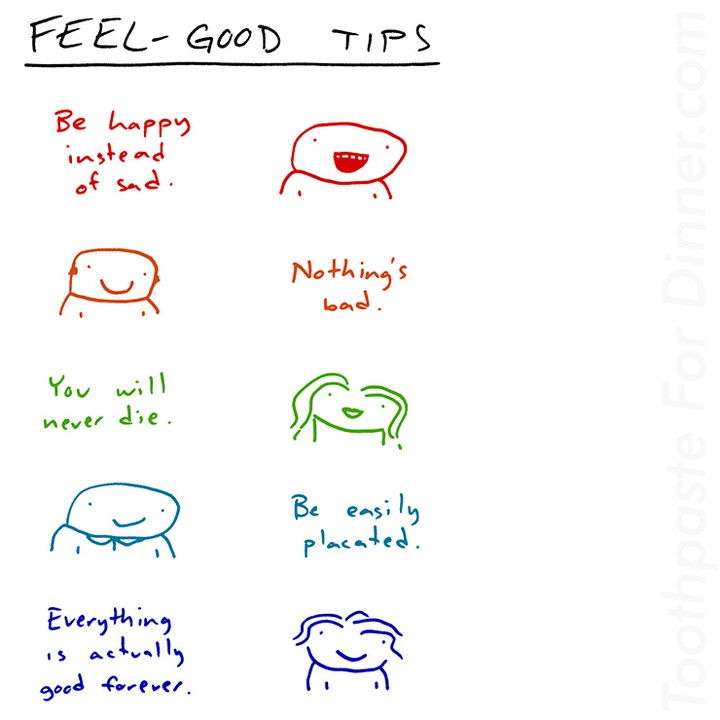 FEEL-GOOD TIPS
Be happy
instead
of sad.
Nothing's
bad.
You will
never die.
Be easily
placated.
Everything
is actually
good forever.
Toothpaste For Dinner.com